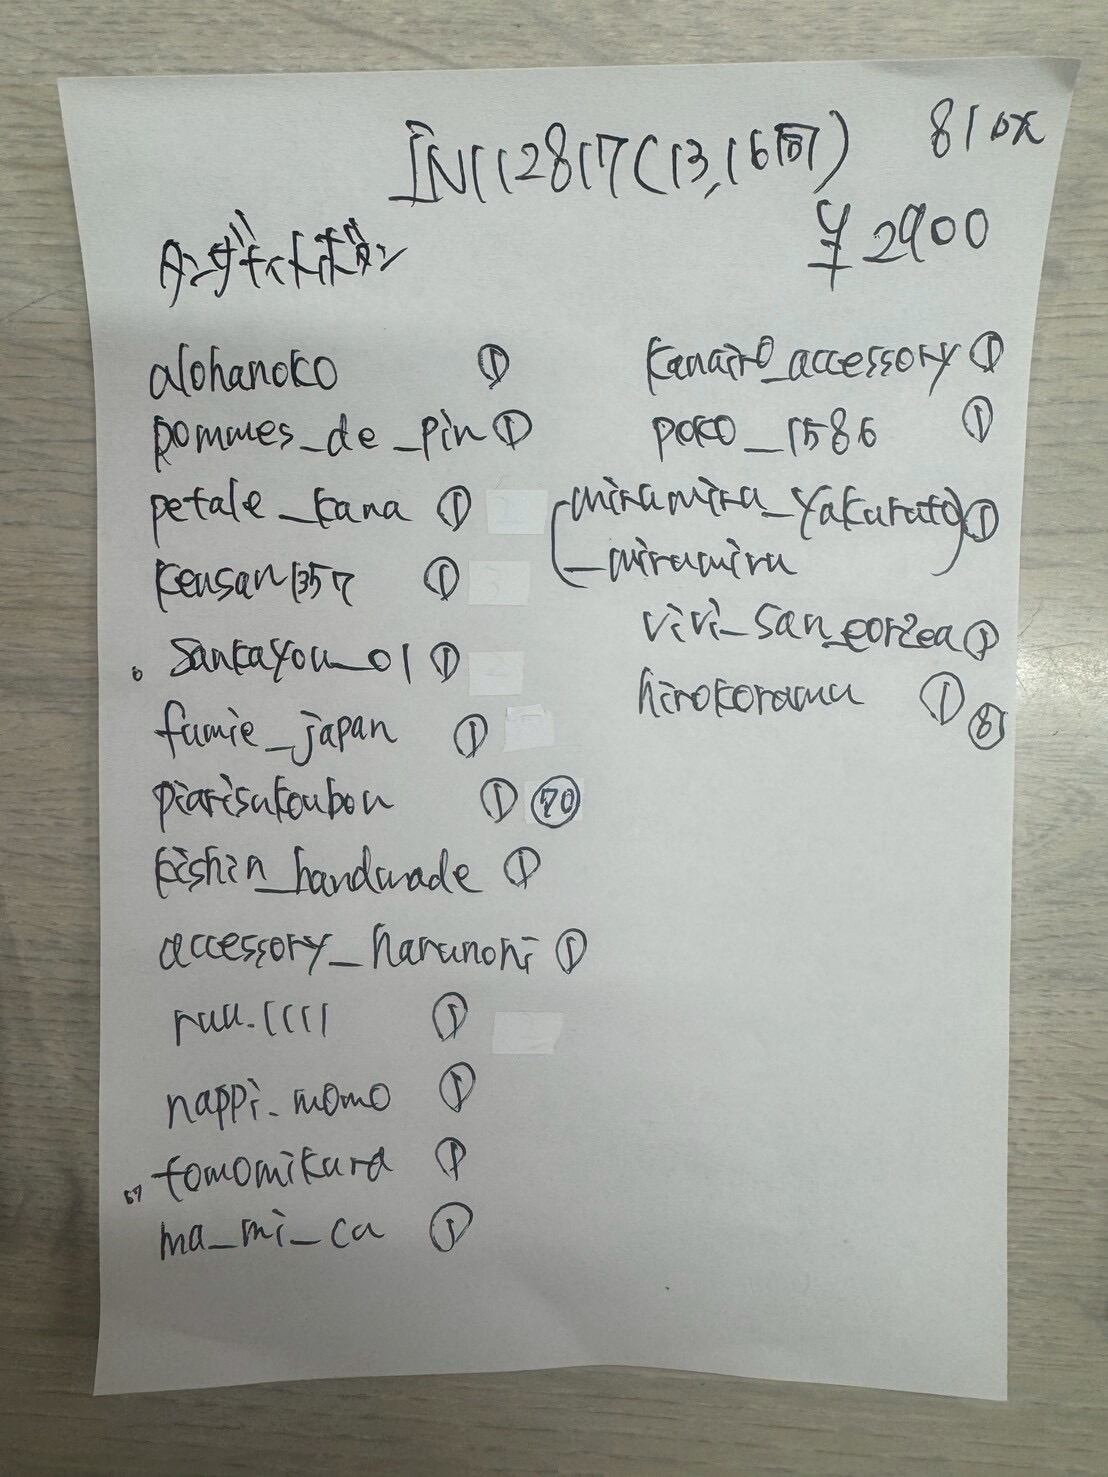 IN112817(13,16問) 810pt
¥2900
タンザナイトボタン
alohanoko ①
pommes_de_pin ①
petale_kana ①
kensan1357 ①
sankayou_01 ①
fumie_japan ①
piarisukoubou ① 70
kishin_handmade ①
accessory_harunohi ①
ruu.1111 ①
nappi_momo ①
tomomikura ①
ma_mi_ca ①
kanairo_accessory ①
poko_1586 ①
(miramira_yakurato) ①
_miramira
vivi_san_eorzea ①
hirokoramu ① ⑧